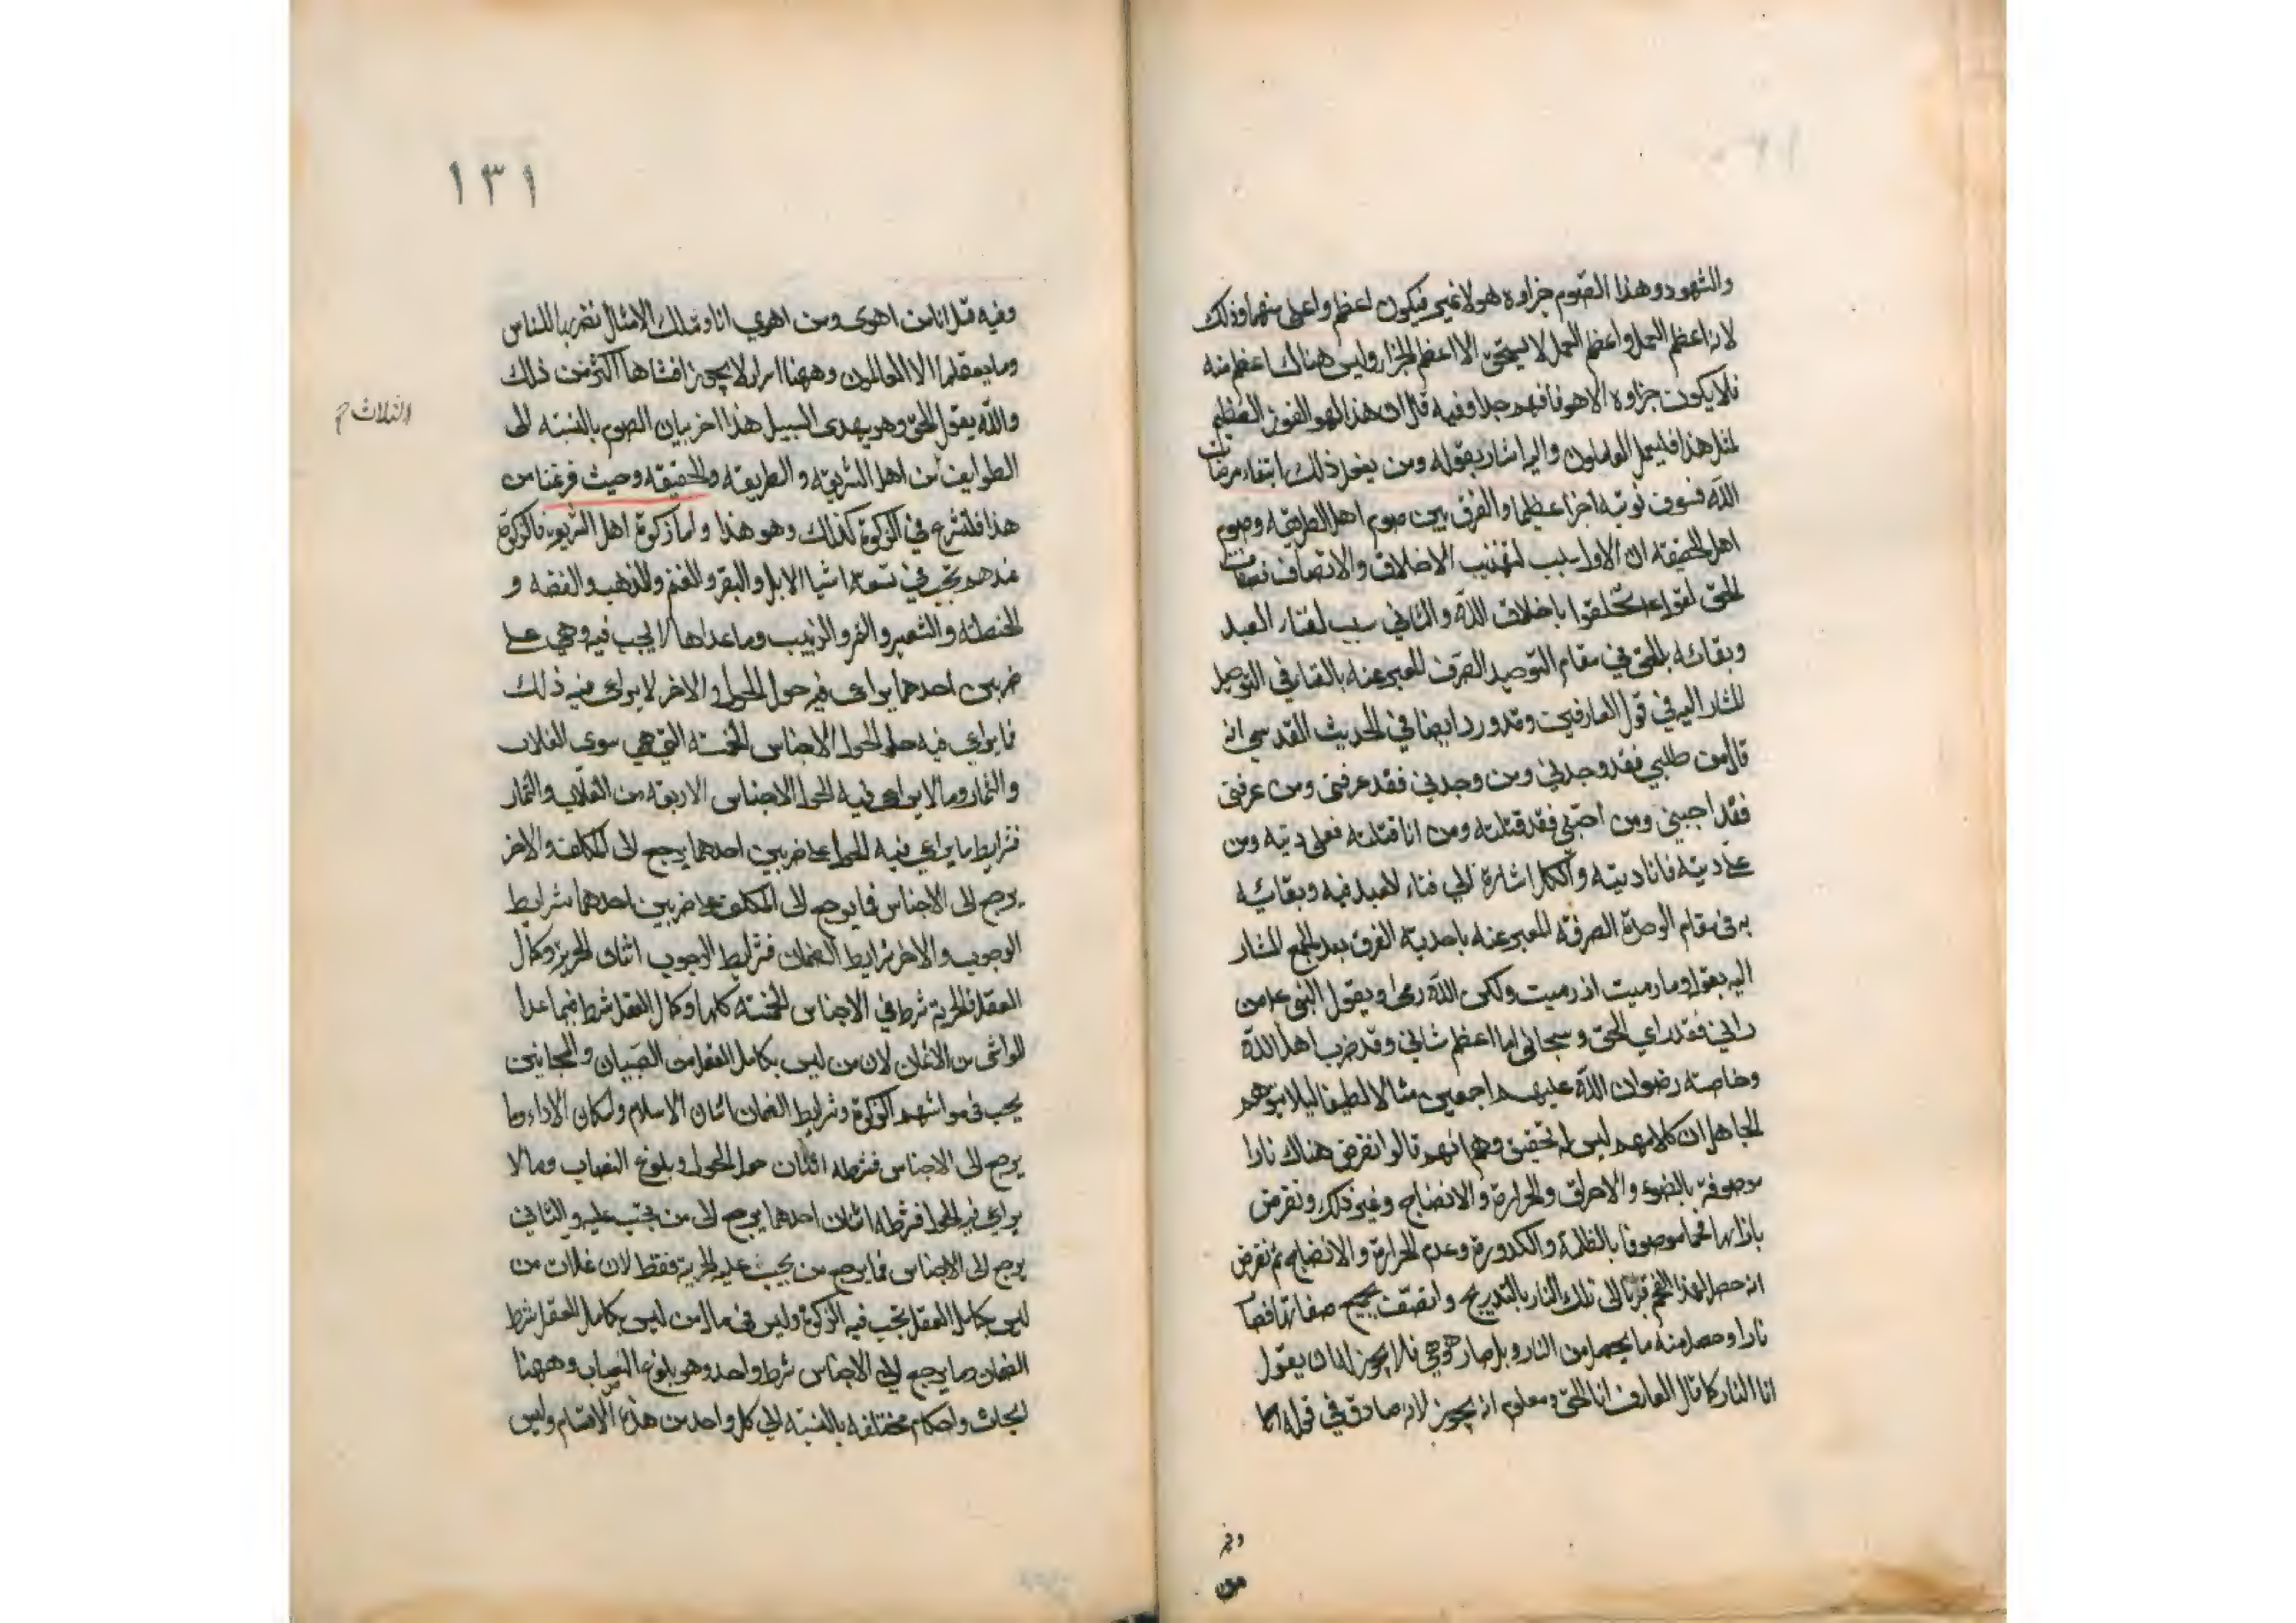 والشهود وهذا الصوم جزاوه هو لا غير فيكون اعظم واعلى منهما وذلك
لانه اعظم العمل واعظم العمل لا يستحق الا اعظم الجزاء وليس هناك اعظم منه
فلا يكون جزاوه الا هو فافهم جدا وفيه قال ان هذا لهو الفوز العظيم
لمثل هذا فليعمل العاملون واليه اشار بقوله ومن يفعل ذلك ابتغاء مرضات
الله فسوف نوتيه اجرا عظيما والفرق بين صوم اهل الطريقه وصوم
اهل الحقيقه ان الاول سبب لتهذيب الاخلاق والاتصاف بصفات
الحق لقوله تخلقوا باخلاق الله والثاني سبب لفناء العبد
وبقائه بالحق في مقام التوحيد الصرف المعبر عنه بالفناء في التوحيد
المشار اليه في قول العارفين وقد ورد ايضا في الحديث القدسي انه
قال من طلبني فقد وجدني ومن وجدني فقد عرفني ومن عرفني
فقد احبني ومن احبني فقد قتلته ومن انا قتلته فعلي ديته ومن
علي ديته فانا ديته والكل اشارة الي فناء العبد فيه وبقائه
به في مقام الوحدة الصرفه المعبر عنه باحدية الفرق بعد الجمع المشار
اليه بقوله وما رميت اذ رميت ولكن الله رمى وبقول النبي عم من
راني فقد راي الحق و سبحاني ما اعظم شاني وقد ضرب اهل الله
وخاصته رضوان الله عليهم اجمعين مثالا لطيفا ليلا يتوهم
الجاهل ان كلامهم ليس له تحقيق وهو انهم قالوا نفرض هناك نارا
موصوفة بالضوء والاحراق والحرارة والانضاج وغير ذلك ونفرض
بازائها فحما موصوفا بالظلمة والكدورة وعدم الحرارة والانضاج ثم نفرض
انه حصل لهذا الفحم قربا الى تلك النار بالتدريج واتصف بجميع صفاتها فصار
نارا وحصل منه ما يحصل من النار وبل صار هو هي فلا يجوز له ان يقول
انا النار كما قال العارف انا الحق ومعلوم انه يجوز لانه صادق في قوله كما
وفيه
١٣١
وفيه قيل انا من اهوى ومن اهوي انا وتلك الامثال نضربها للناس
وما يعقلها الا العالمون وههنا اسرار لا يجوز افشاها اكثر من ذلك
والله يقول الحق وهو يهدى السبيل هذا اخر بيان الصوم بالنسبه الى
الثلاث
الطوايف من اهل الشريعه والطريقه والحقيقه وحيث فرغنا من
هذا فلنشرع في الزكوة كذلك وهو هذا واما زكوة اهل الشريعه فالزكوة
عندهم تجب في تسعة اشيا الابل والبقر والغنم والذهب والفضه و
الحنطة والشعير والتمر والزبيب وما عداها لا يجب فيه وهي على
ضربين احدهما يراعى فيه حول الحول والاخر لا يراعى فيه ذلك
فما يراعي فيه حلول الحول الاجناس الخمسه التي هي سوي الغلات
والثمار وما لا يراعى فيه الحول الاجناس الاربعه من الغلات والثمار
فشرايط ما يراعي فيه الحول على ضربين احدهما يرجع الى المكلف والاخر
يرجع الى الاجناس فما يرجع الى المكلف على ضربين احدهما شرايط
الوجوب والاخر شرايط الضمان فشرايط الوجوب اثنان الحرية وكمال
العقل فالحرية شرط في الاجناس الخمسة كلها وكمال العقل شرط فيما عدا
المواشى من الاثمان لان من ليس بكامل العقل من الصبيان والمجانين
يجب فى مواشيهم الزكوة وشرايط الضمان اثنان الاسلام وامكان الاداء وما
يرجع الى الاجناس فشرطه اثنان حول الحول وبلوغ النصاب وما لا
يراعي فيه الحول فشرطه اثنان احدهما يرجع الى من تجب عليه والثاني
يرجع الى الاجناس فما يرجع من يجب عليه الحرية فقط لان غلات من
ليس بكامل العقل تجب فيه الزكوة وليس في مال من ليس بكامل العقل شرط
الضمان وما يرجع الي الاجناس شرط واحد وهو بلوغ النصاب وههنا
ابحاث واحكام مختلفه بالنسبة الي كل واحد من هذه الاقسام وليس